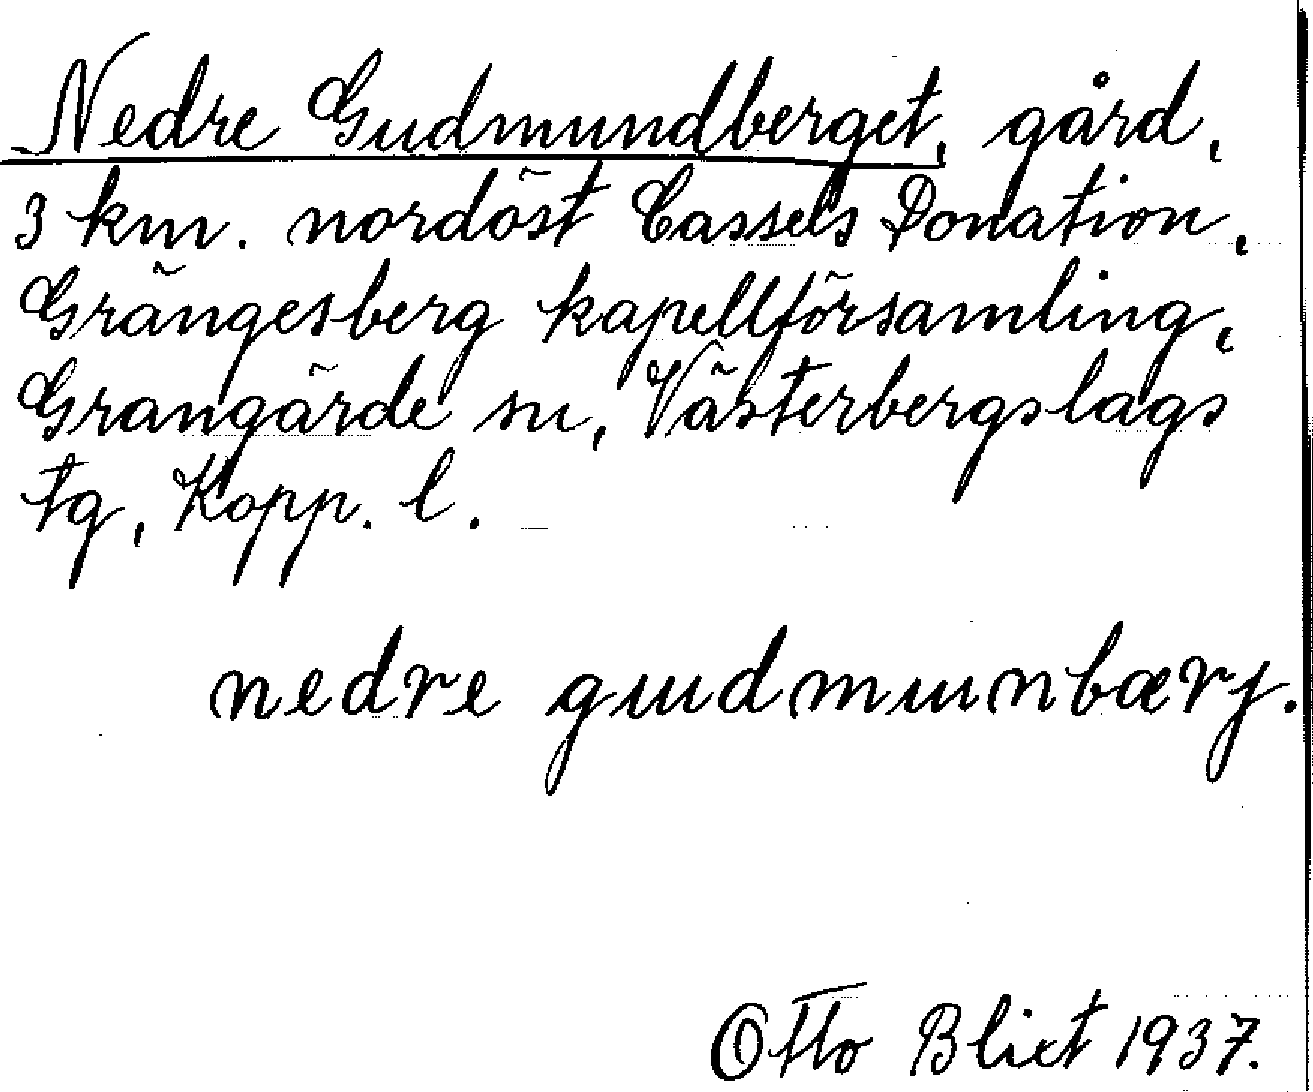 Nedre Gudmundberget, gård,
3 km. nordöst Cassels Donation,
Grängesberg kapellförsamling,
Grangärde sn, Västerbergslags
tg, Kopp. l.
nedre gudmunbærj.
Otto Blixt 1937.